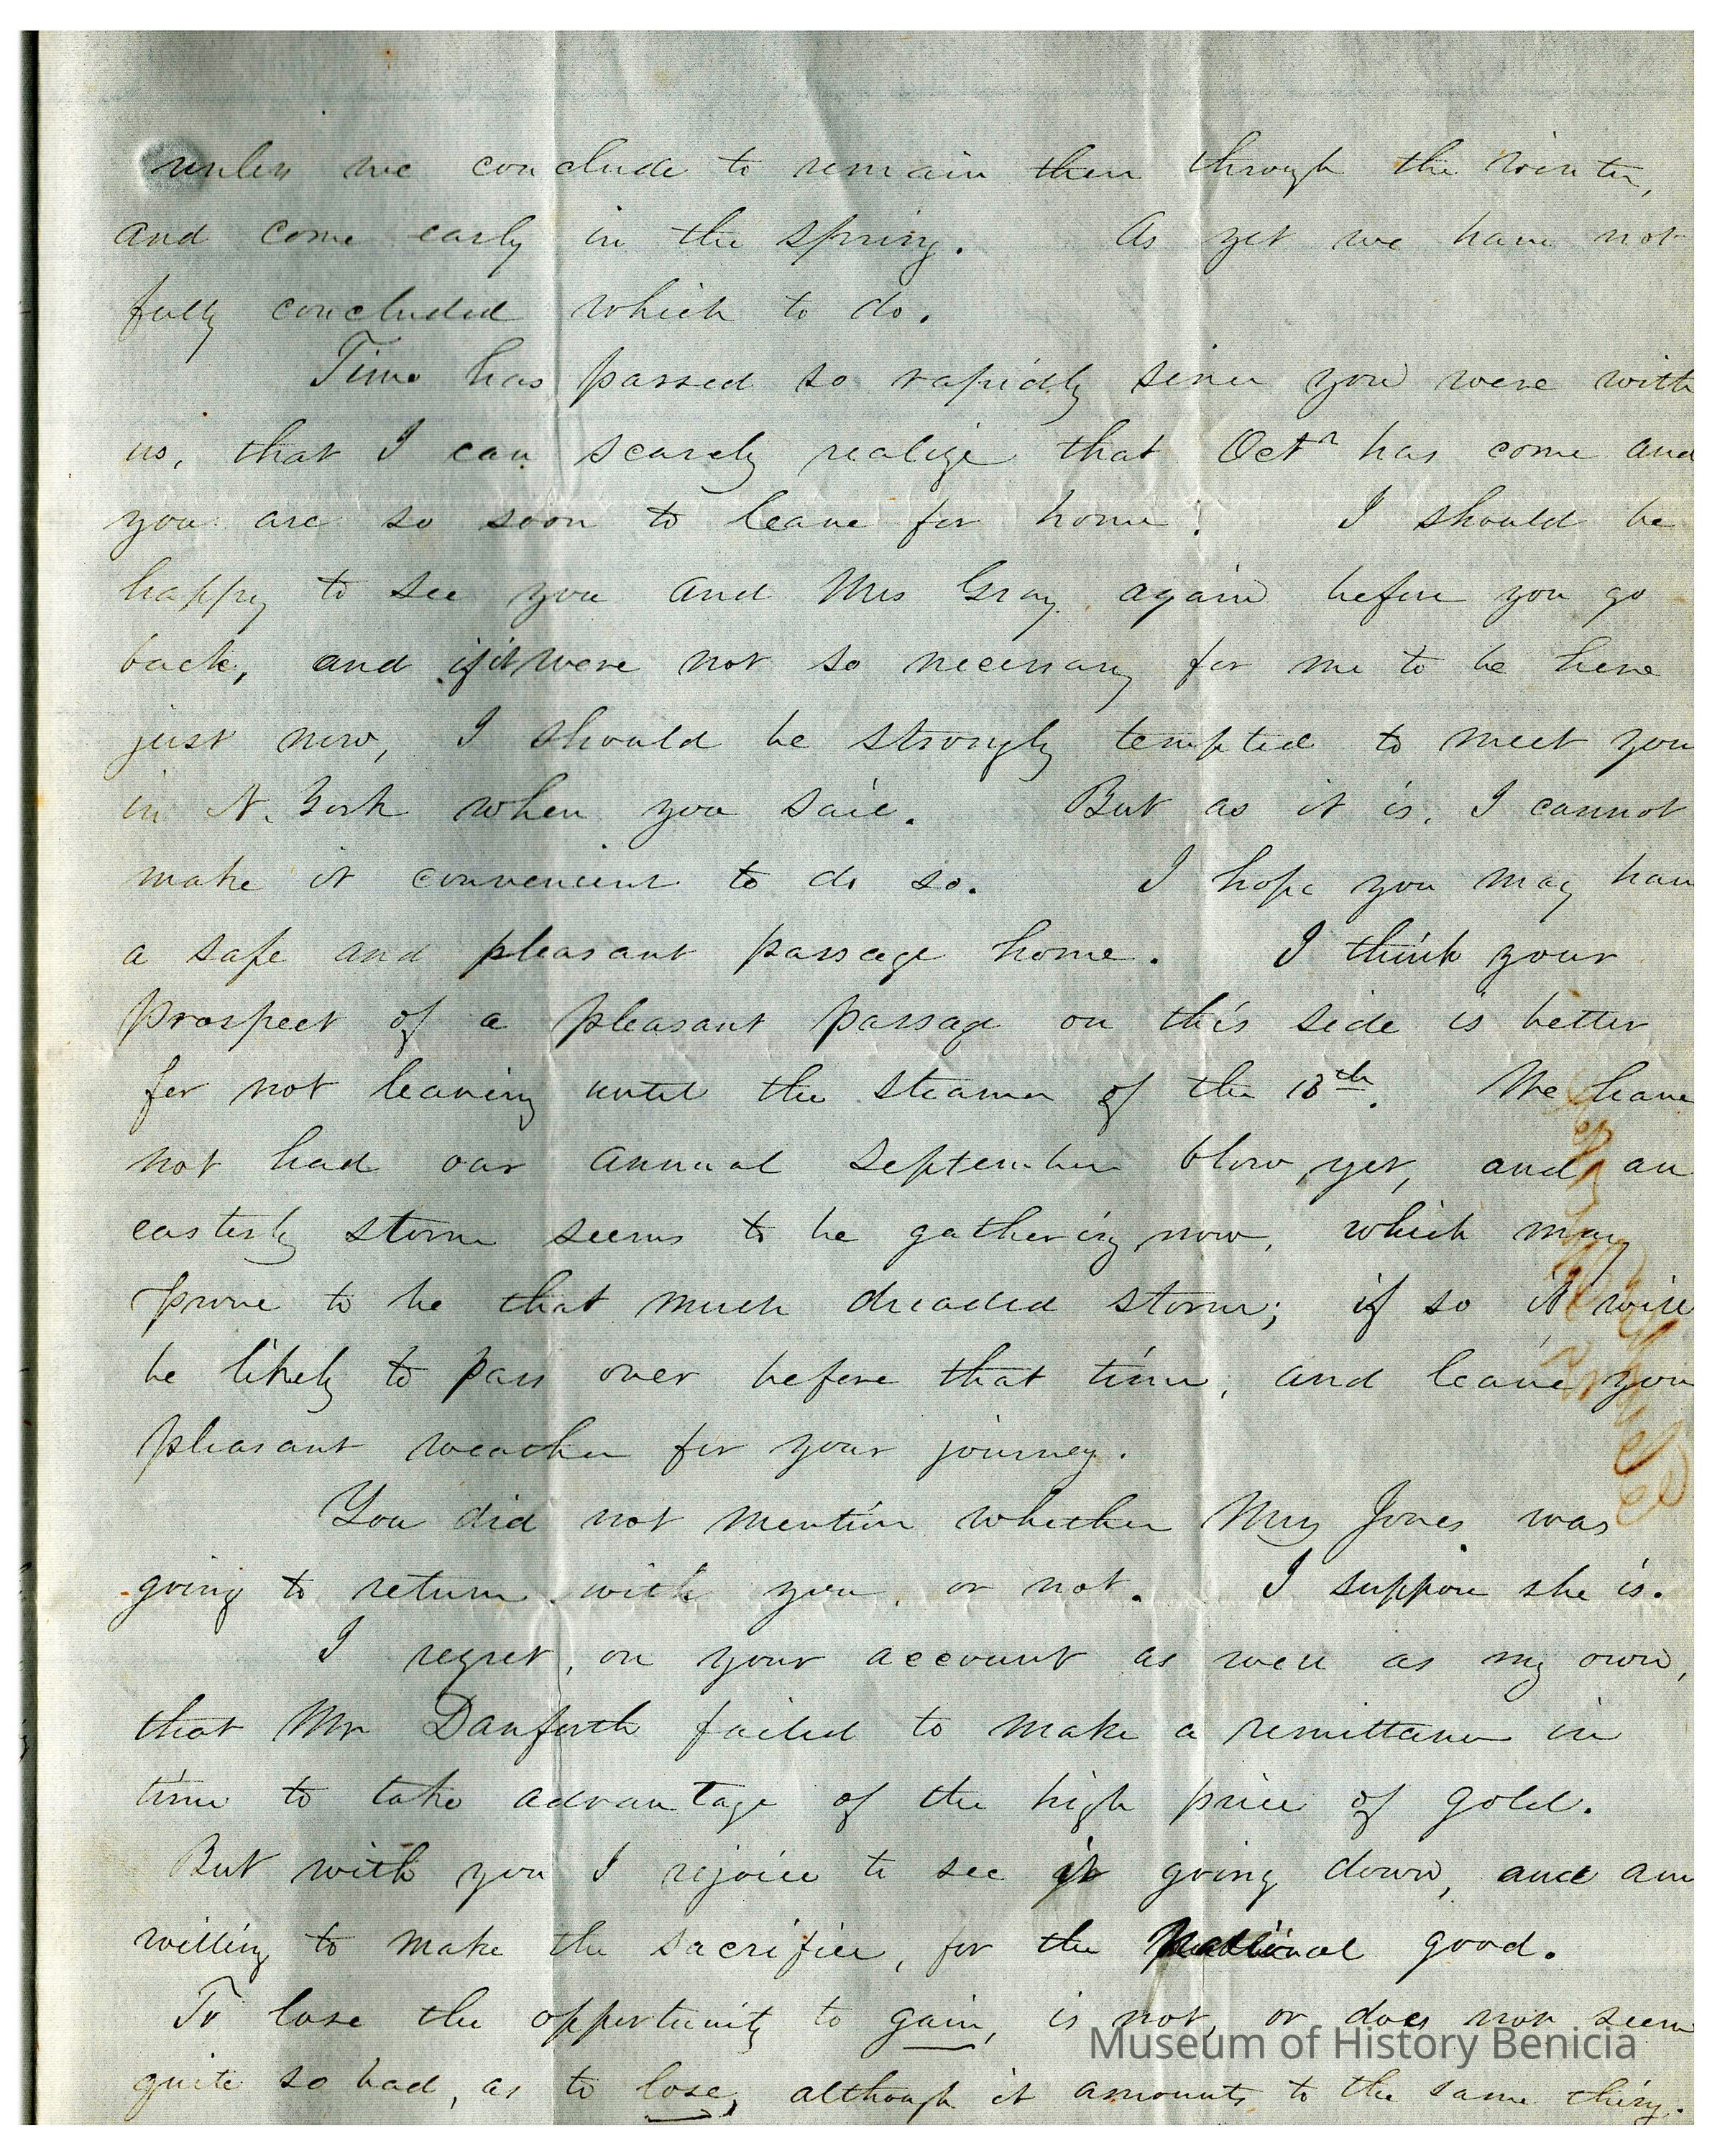 unless we conclude to remain then through the winter,
and come early in the spring. As yet we have not
fully concluded which to do.
Time has passed so rapidly since you were with
us, that I can scarcely realize that Octr has come and
you are so soon to leave for home. I should be
happy to see you and Mrs Gray again before you go
back, and if it were not so necessary for me to be here
just now, I should be strongly tempted to meet you
in N. York when you sail. But as it is, I cannot
make it convenient to do so. I hope you may have
a safe and pleasant passage home. I think your
prospect of a pleasant passage on this side is better
for not leaving until the steamer of the 13th. We have
not had our annual September blow, yet, and an
easterly storm seems to be gathering now, which may
prove to be that much dreaded storm; if so it will
be likely to pass over before that time, and leave you
pleasant weather for your journey.
You did not mention whether Mrs Jones was
going to return with you or not. I suppose she is.
I regret, on your account as well as my own,
that Mr Danforth failed to make a remittance in
time to take advantage of the high price of gold.
But with you I rejoice to see it going down, and am
willing to make the sacrifice, for the national good.
To lose the opportunity to gain, is not, or does not seem
quite so bad, as to lose, although it amounts to the same thing.
Museum of History Benicia